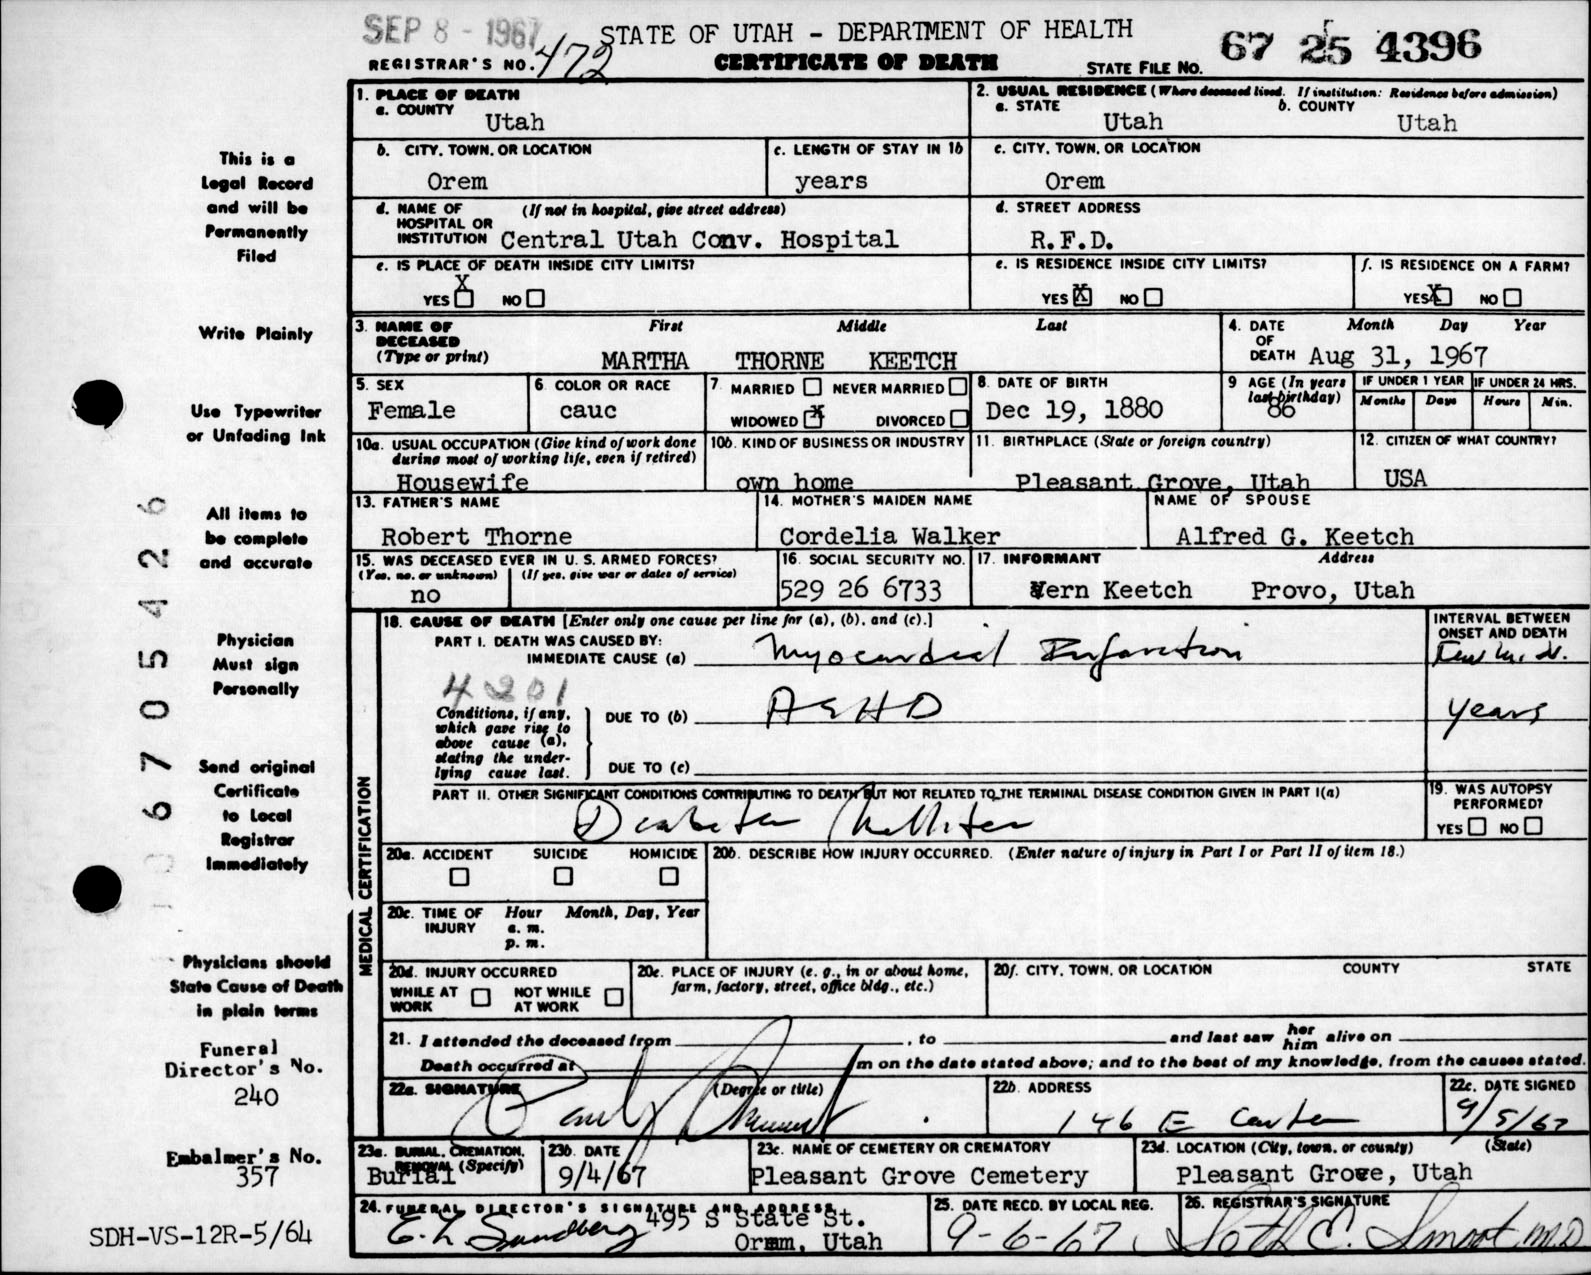 SEP 8 - 1967
STATE OF UTAH - DEPARTMENT OF HEALTH
67 25 4396
REGISTRAR'S NO. 472
CERTIFICATE OF DEATH
STATE FILE NO.
1. PLACE OF DEATH
a. COUNTY
Utah
2. USUAL RESIDENCE (Where deceased lived. If institution: Residence before admission)
a. STATE b. COUNTY
Utah Utah
b. CITY, TOWN, OR LOCATION
Orem
c. LENGTH OF STAY IN 1b
years
c. CITY, TOWN, OR LOCATION
Orem
d. NAME OF (If not in hospital, give street address)
HOSPITAL OR
INSTITUTION Central Utah Conv. Hospital
d. STREET ADDRESS
R.F.D.
e. IS PLACE OF DEATH INSIDE CITY LIMITS?
X
YES NO
e. IS RESIDENCE INSIDE CITY LIMITS?
YES X NO
f. IS RESIDENCE ON A FARM?
YES X NO
3. NAME OF First Middle Last
DECEASED
(Type or print) MARTHA THORNE KEETCH
4. DATE Month Day Year
OF
DEATH Aug 31, 1967
5. SEX
Female
6 COLOR OR RACE
cauc
7. MARRIED NEVER MARRIED
WIDOWED X DIVORCED
8. DATE OF BIRTH
Dec 19, 1880
9 AGE (In years
last birthday)
86
IF UNDER 1 YEAR IF UNDER 24 HRS.
Months Days Hours Min.
10a. USUAL OCCUPATION (Give kind of work done
during most of working life, even if retired)
Housewife
10b. KIND OF BUSINESS OR INDUSTRY
own home
11. BIRTHPLACE (State or foreign country)
Pleasant Grove, Utah
12. CITIZEN OF WHAT COUNTRY?
USA
13. FATHER'S NAME
Robert Thorne
14. MOTHER'S MAIDEN NAME
Cordelia Walker
NAME OF SPOUSE
Alfred G. Keetch
15. WAS DECEASED EVER IN U. S. ARMED FORCES?
(Yes, no, or unknown) (If yes, give war or dates of service)
no
16. SOCIAL SECURITY NO.
529 26 6733
17. INFORMANT Address
Vern Keetch Provo, Utah
MEDICAL CERTIFICATION
18. CAUSE OF DEATH [Enter only one cause per line for (a), (b), and (c).]
PART I. DEATH WAS CAUSED BY:
IMMEDIATE CAUSE (a) Myocardial Infarction
INTERVAL BETWEEN
ONSET AND DEATH
Few
4201
Conditions, if any,
which gave rise to
above cause (a),
stating the under-
lying cause last.
DUE TO (b) ASHD
years
DUE TO (c)
PART II. OTHER SIGNIFICANT CONDITIONS CONTRIBUTING TO DEATH BUT NOT RELATED TO THE TERMINAL DISEASE CONDITION GIVEN IN PART I(a)
Diabetes Mellitus
19. WAS AUTOPSY
PERFORMED?
YES NO
20a. ACCIDENT SUICIDE HOMICIDE
20b. DESCRIBE HOW INJURY OCCURRED. (Enter nature of injury in Part I or Part II of item 18.)
20c. TIME OF Hour Month, Day, Year
INJURY a. m.
p. m.
20d. INJURY OCCURRED
WHILE AT NOT WHILE
WORK AT WORK
20e. PLACE OF INJURY (e. g., in or about home,
farm, factory, street, office bldg., etc.)
20f. CITY, TOWN, OR LOCATION COUNTY STATE
21. I attended the deceased from , to and last saw her him alive on
Death occurred at m on the date stated above; and to the best of my knowledge, from the causes stated.
22a. SIGNATURE (Degree or title)
22b. ADDRESS
146 E Center
22c. DATE SIGNED
9/5/67
23a. BURIAL, CREMATION,
REMOVAL (Specify)
Burial
23b. DATE
9/4/67
23c. NAME OF CEMETERY OR CREMATORY
Pleasant Grove Cemetery
23d. LOCATION (City, town, or county) (State)
Pleasant Grove, Utah
24. FUNERAL DIRECTOR'S SIGNATURE AND ADDRESS
E. L. Sundberg 495 S State St.
Orem, Utah
25. DATE RECD. BY LOCAL REG.
9-6-67
26. REGISTRAR'S SIGNATURE
Seth E. Smoot, M.D
This is a
Legal Record
and will be
Permanently
Filed
Write Plainly
Use Typewriter
or Unfading Ink
All items to
be complete
and accurate
Physician
Must sign
Personally
Send original
Certificate
to Local
Registrar
Immediately
Physicians should
State Cause of Death
in plain terms
Funeral
Director's No.
240
Embalmer's No.
357
SDH-VS-12R-5/64
67 05426